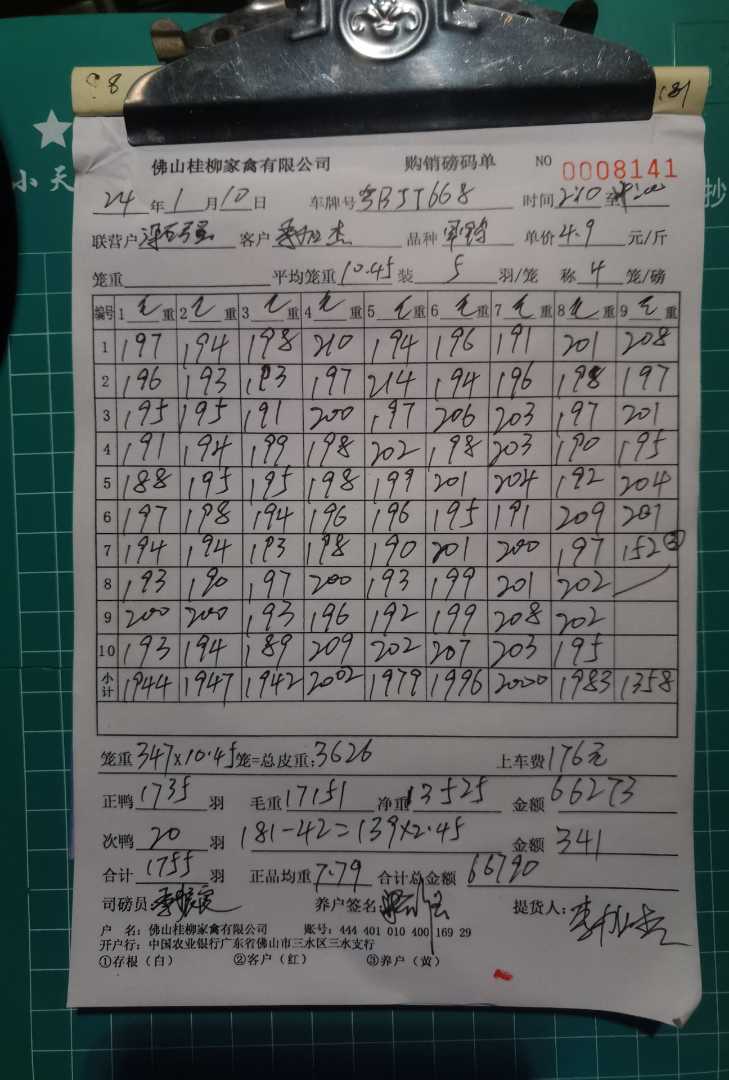 98
181
小天
抄
佛山桂柳家禽有限公司 购销磅码单 NO 0008141
24年1月10日 车牌号粤BJT668 时间2:10至
联营户 客户 杰 品种 单价4.9元/斤
笼重 平均笼重10.45装5羽/笼 称4笼/磅
编号 1毛重 2毛重 3毛重 4毛重 5毛重 6毛重 7毛重 8毛重 9毛重
1 197 194 198 210 194 196 191 201 208
2 196 193 193 197 214 194 196 198 197
3 195 195 191 200 197 206 203 197 201
4 191 194 199 198 202 198 203 190 195
5 188 195 195 198 199 201 204 192 204
6 197 198 194 196 196 195 191 209 201
7 194 194 193 198 190 201 200 197 152③
8 193 190 197 200 193 199 201 202
9 200 200 193 196 192 199 208 202
10 193 194 189 209 202 207 203 195
小计 1944 1947 1942 2002 1979 1996 2000 1983 1358
笼重347×10.45笼=总皮重:3626 上车费176元
正鸭1735羽 毛重17151 净重13525 金额66273
次鸭20羽 181-42=139×2.45 金额341
合计1755羽 正品均重7.79 合计总金额66790
司磅员: 养户签名: 提货人:
户 名:佛山桂柳家禽有限公司 账号:444 401 010 400 169 29
开户行:中国农业银行广东省佛山市三水区三水支行
①存根(白) ②客户(红) ③养户(黄)